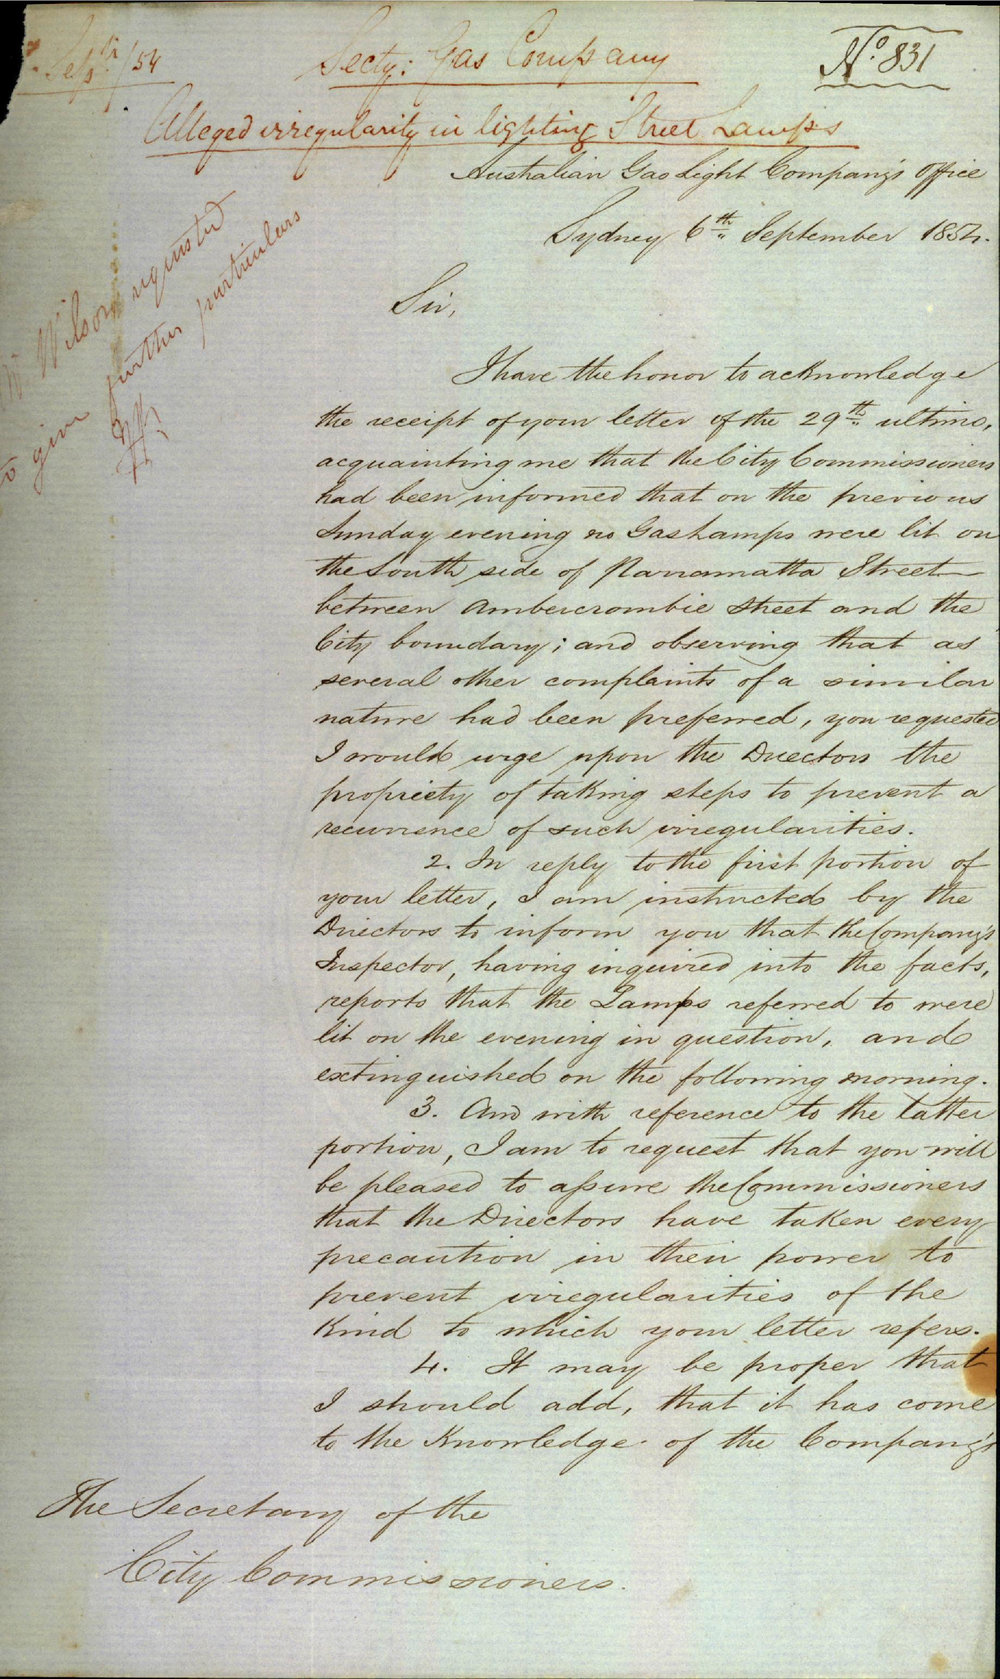 Septr/54
Secty: Gas Company
No. 831
Alleged irregularity in lighting Street Lamps
Australian Gas Light Company's Office
Sydney 6th September 1854.
Wilson requested
to give further particulars
Sir,
I have the honor to acknowledge
the receipt of your letter of the 29th ultimo,
acquainting me that the City Commissioners
had been informed that on the previous
Sunday evening no Gas Lamps were lit on
the South side of Parramatta Street
between Ambercrombie Street and the
City boundary; and observing that as
several other complaints of a similar
nature had been preferred, you requested
I would urge upon the Directors the
propriety of taking steps to prevent a
recurrence of such irregularities.
2. In reply to the first portion of
your letter, I am instructed by the
Directors to inform you that the Company's
Inspector, having inquired into the facts,
reports that the Lamps referred to were
lit on the evening in question, and
extinguished on the following morning.
3. And with reference to the latter
portion, I am to request that you will
be pleased to assure the Commissioners
that the Directors have taken every
precaution in their power to
prevent irregularities of the
kind to which your letter refers.
4. It may be proper that
I should add, that it has come
to the knowledge of the Company's
The Secretary of the
City Commissioners.